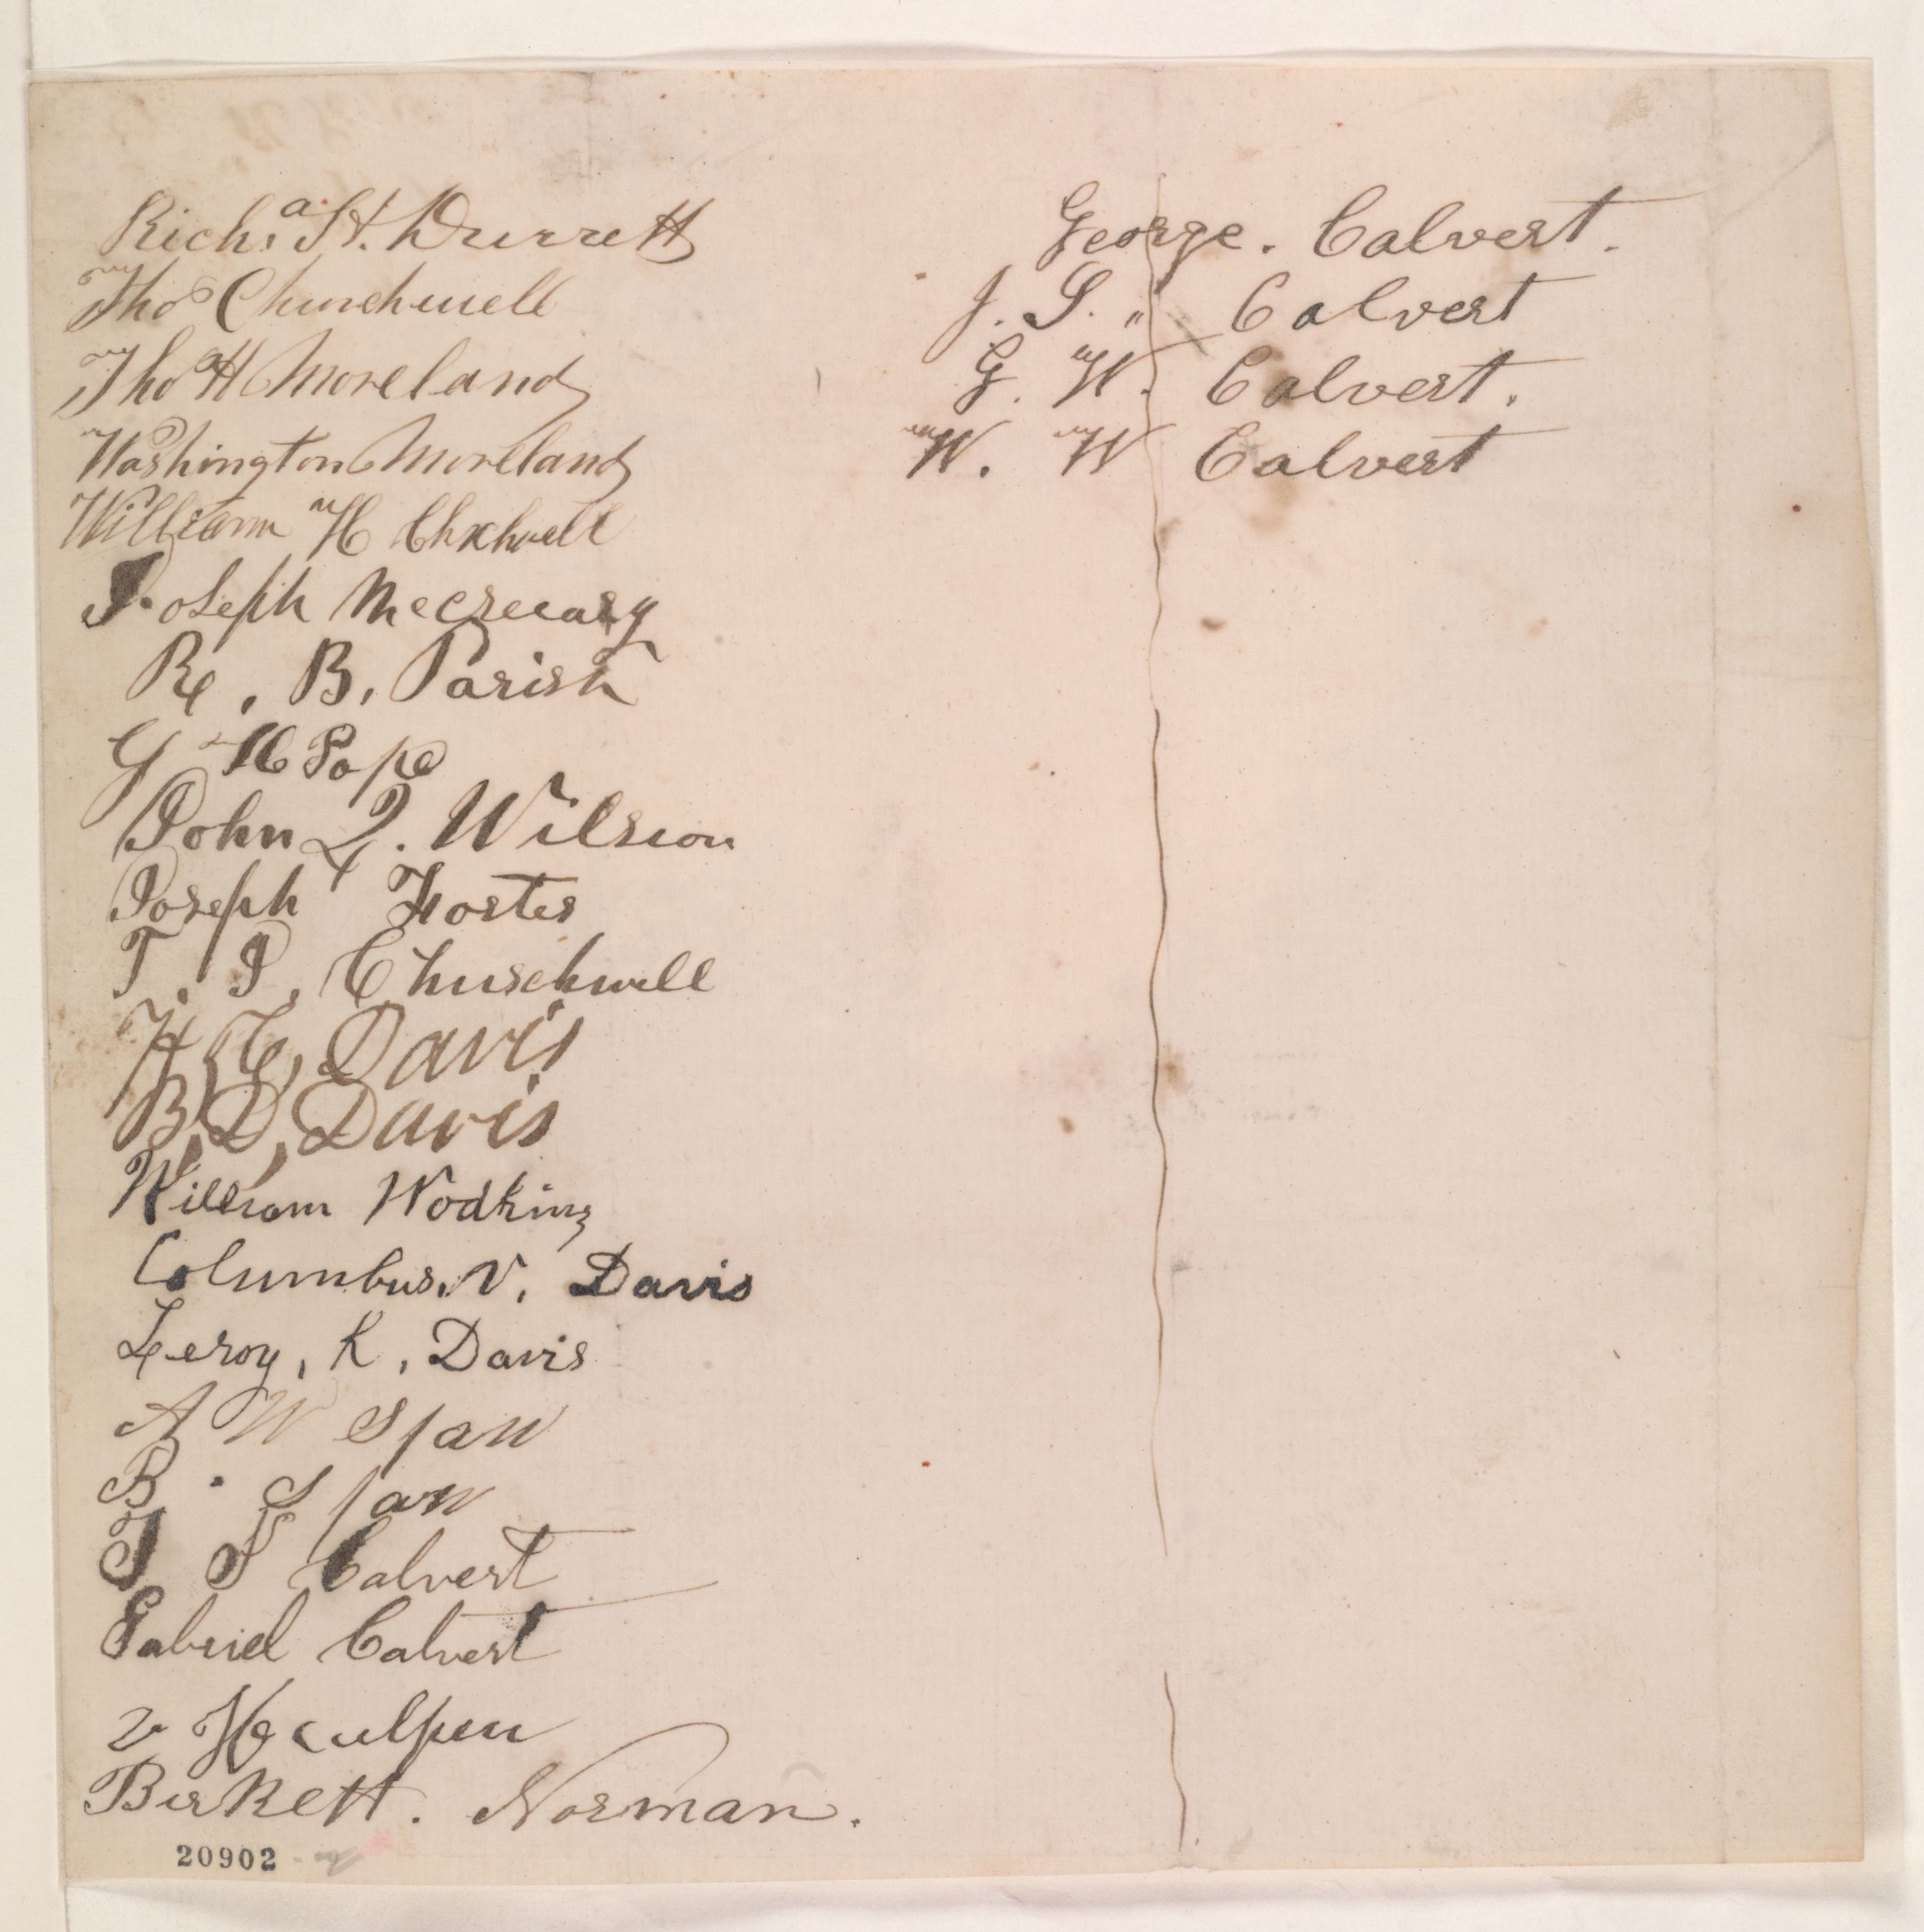 Richa. H. Durrett
Thos Churchwell
Thos H Moreland
Washington Moreland
William H Chxhwell
Joseph Mccreeary
R. B. Parish
G H Pope
John Q. Wilson
Joseph Foster
T. J. Churchwell
H, C, Davis
B, D, Davis
William Wodkins
Columbus. V. Davis
Leroy, K, Davis
A W Span
B. Span
J S Calvert
Gabriel Calvert
Birkett. Norman.
20902
George. Calvert.
J. S. " Calvert
G. W. Calvert.
W. W Calvert